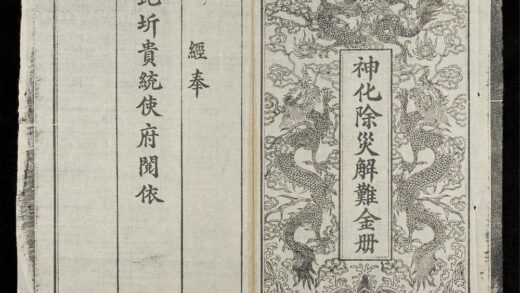 神化除災解難金册
經奉
北圻貴統使府閱依